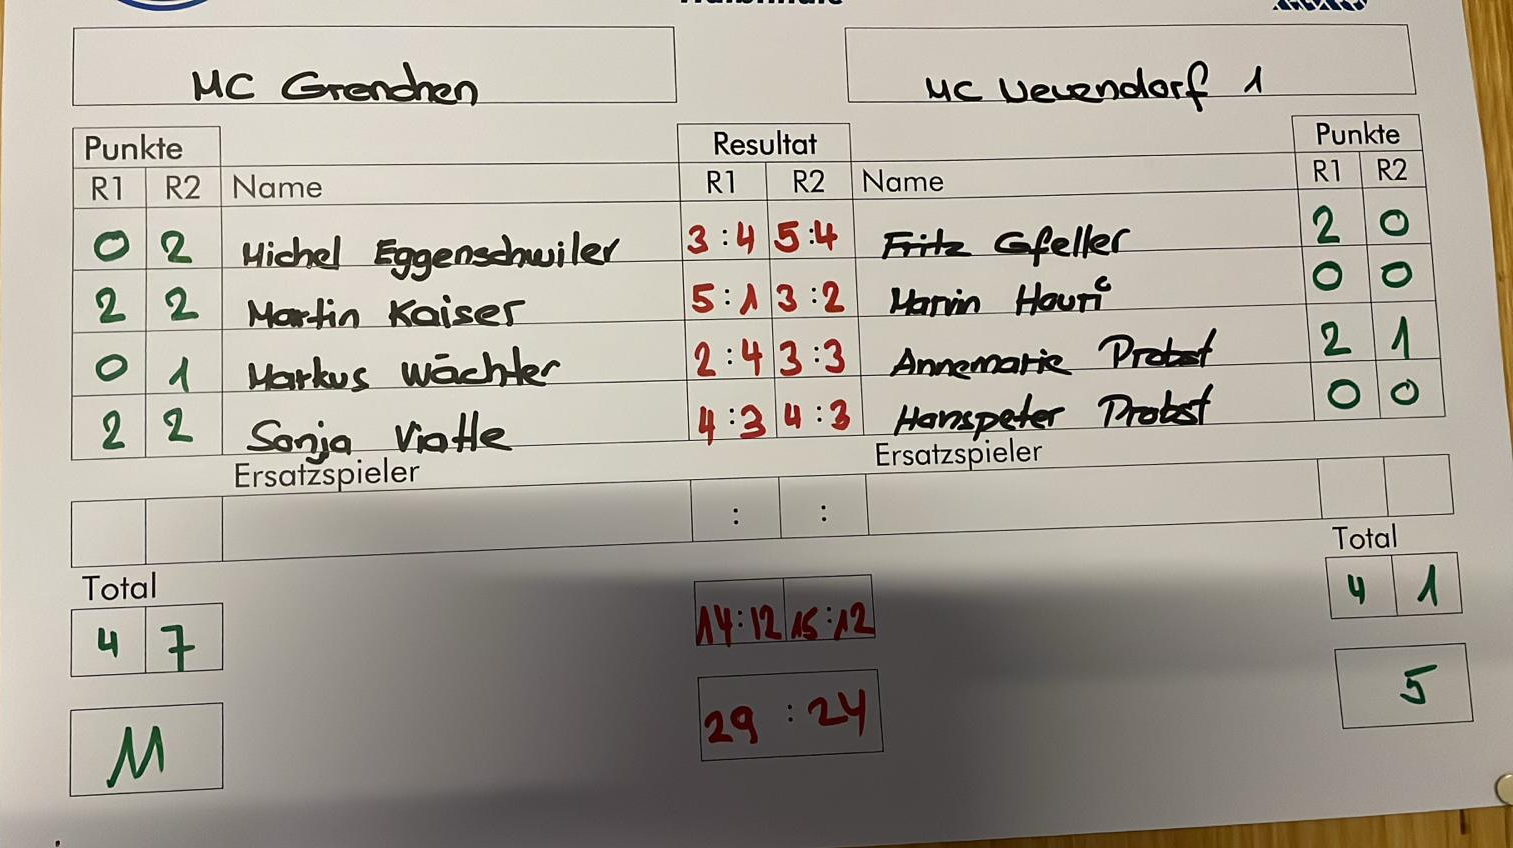 MC Grenchen MC Neuendorf 1
Punkte Resultat Punkte
R1 R2 Name R1 R2 Name R1 R2
0 2 Michel Eggenschwiler 3:4 5:4 Fritz Gfeller 2 0
2 2 Martin Kaiser 5:1 3:2 Marvin Houri 0 0
0 1 Markus Wächter 2:4 3:3 Annemarie Probst 2 1
2 2 Sonja Viatte 4:3 4:3 Hanspeter Probst 0 0
Ersatzspieler Ersatzspieler
: :
Total Total
4 7 14:12 15:12 4 1
11 29:24 5